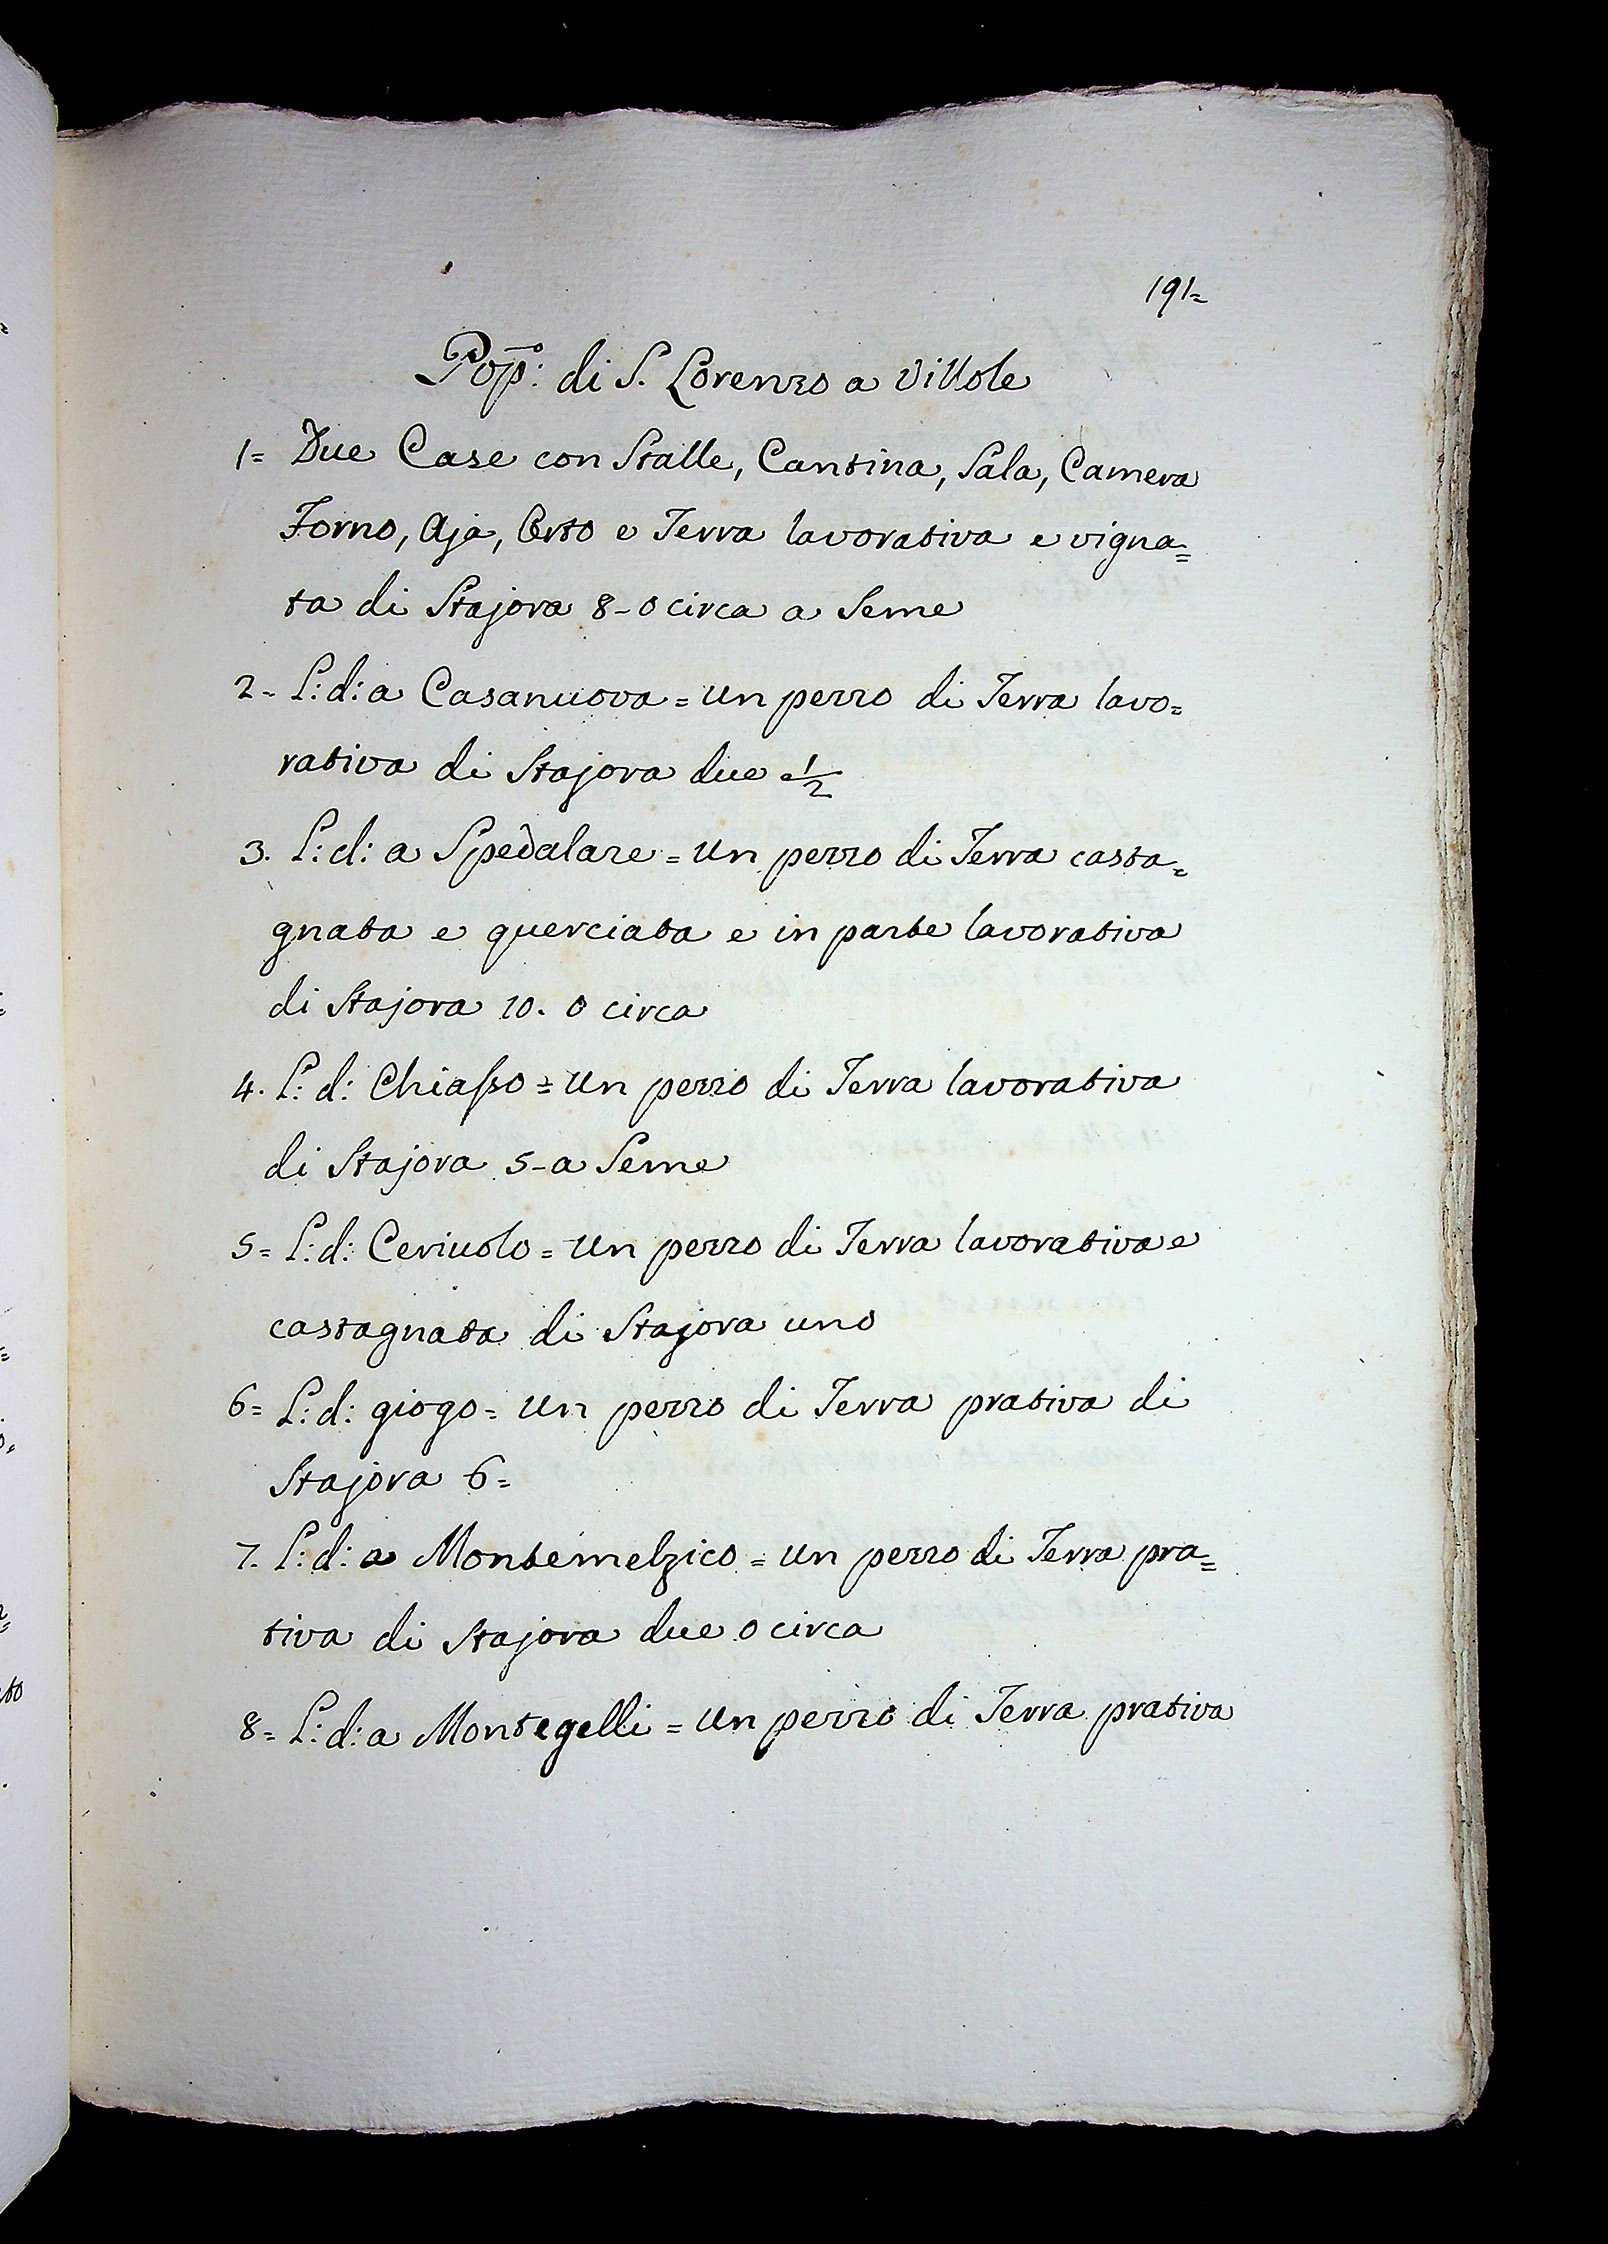 191=
Pop̄o: di S. Lorenzo a Villole
1= Due Case con Stalle, Cantina, Sala, Camera
Forno, Aja, Orto e Terra lavorativa e vigna=
ta di Stajora 8-0 circa a Seme
2- L: d: a Casanuova = un pezzo di Terra lavo=
rativa di Stajora due 1/2
3. L: d: a Spedalare = un pezzo di Terra casta=
gnata e querciata e in parte lavorativa
di Stajora 10. 0 circa
4. L: d: Chiasso = un pezzo di Terra lavorativa
di Stajora 5-a Seme
5= L: d: Ceriuolo = un pezzo di Terra lavorativa e
castagnata di Stajora uno
6= L: d: giogo = un pezzo di Terra prativa di
Stajora 6=
7. L: d: a Montemelzico = un pezzo di Terra pra=
tiva di Stajora due o circa
8= L: d: a Montegelli = un pezzo di Terra prativa